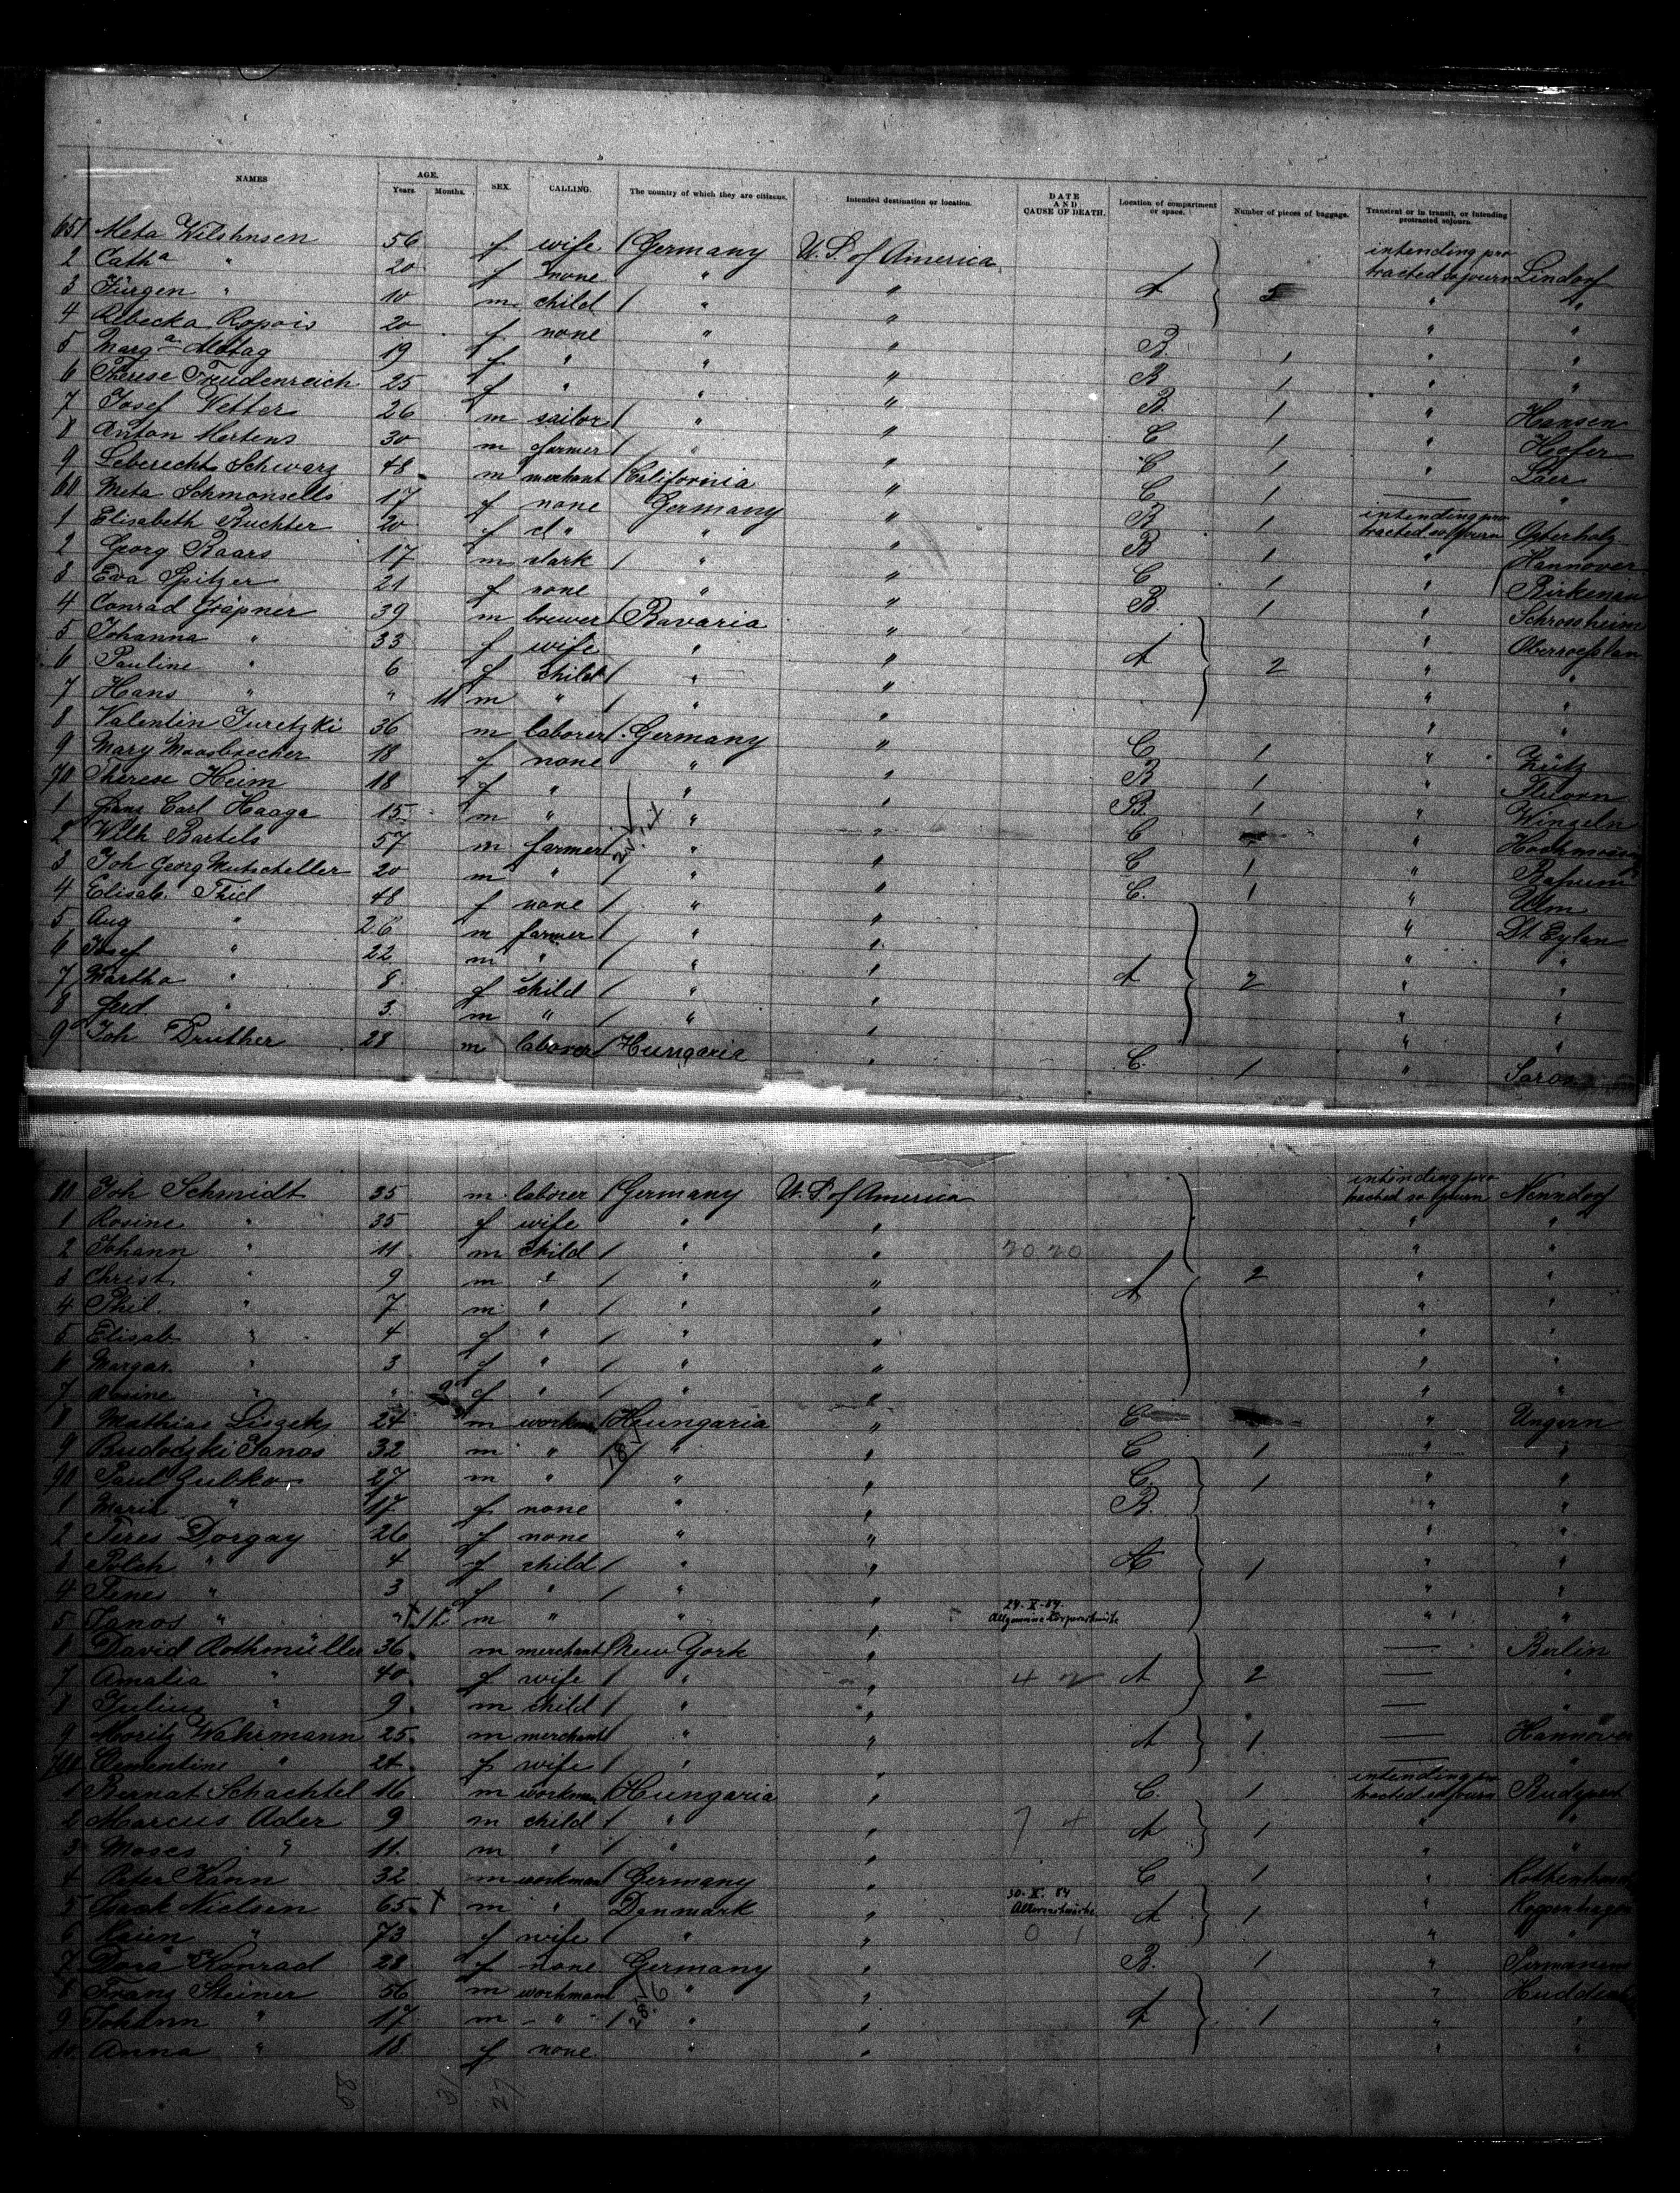 NAMES AGE. Years. Months. SEX. CALLING. The country of which they are citizens. Intended destination or location. DATE AND CAUSE OF DEATH. Location of compartment or space. Number of pieces of baggage. Transient or in transit, or intending protracted sojourn.
651 Meta Wilshusen 56 f wife Germany U. S. of America intending pro
2 Cath a " 20 f none " " tracted sojourn Lindorf
3 Jürgen " 10 m child " " A 5 " "
4 Rebecka 20 f none " " B. 1 " "
5 Marg a 19 f " " " B 1 " "
6 Therese Freudenreich 25 f " " " B. 1 " Hansen
7 Josef Vetter 26 m sailor " " C 1 " Hofer
8 Anton Mertens 30 m farmer " " C 1 " Laer
9 Leberecht Schwarz 48 m merchant California " C 1 — "
60 Meta 17 f none Germany " B 1 intending pro tracted sojourn Osterholz
1 Elisabeth Buchter 20 f " " " B 1 " Hannover
2 Georg Baars 17 m clark " " C 1 " Birkenau
3 Eva Spitzer 21 f none " " B 1 " Schrossheim
4 Conrad Gräpner 39 m brewer Bavaria " "
5 Johanna " 33 f wife " " A 2 " "
6 Pauline " 6 f child " " " "
7 Hans " " 11 m " " " " "
8 Valentin Juretzki 36 m laborer Germany " C 1 " Zütz
9 Mary Moosbrecher 18 f none " " B 1 " Fluorn
70 Therese Heim 18 f " " " B. 1 " Wingeln
1 Carl Haaga 15 m " " " C "
2 Wilh Bartels 57 m farmer " " C 1 "
3 Joh Georg Mutscheller 20 m " " " C. 1 " Ulm
4 Elisab. Thiel 48 f none " " " Dt Eylau
5 Aug " 26 m farmer " " " "
6 Josef " 22 m " " " A 2 " "
7 Martha " 8 f child " " " "
8 Ferd. " 3 m " " " " "
9 Joh Druther 28 m laborer Hungaria " C. 1 "
80 Joh Schmidt 35 m laborer Germany U. S. of America intending pro tracted sojourn Nenndorf
1 Rosine " 35 f wife " " " "
2 Johann " 11 m child " " 20 20 " "
3 Christ. " 9 m " " " A 2 " "
4 Phil. " 7 m " " " " "
5 Elisab. " 4 f " " " " "
6 Margar. " 3 f " " " " "
7 Rosine " " f " " " " "
8 Mathias Liszek 24 m workman Hungaria " C " Ungarn
9 Budoczki Janos 32 m " " " C 1 " "
90 Paul Zubko 27 m " " " C. 1 " "
1 Maria " 17 f none " " B. " "
2 Teres Dorgay 26 f none " " " "
3 " 4 f child " " A 1 " "
4 " 3 f " " " " "
5 Janos " " 11 m " " " 24. X. 84. Allgemeine " "
6 David Rothmüller 36 m merchant New York " — Berlin
7 Amalia " 40 f wife " " 4 2 A 2 — "
8 Julius " 9 m child " " — "
9 Moritz Wahrmann 25 m merchant " " A 1 — Hannover
700 Clementine " 24 f wife " " — "
1 Bernat Schachtel 16 m workman Hungaria " C. 1 intending pro tracted sojourn Budapest
2 Marcus Ader 9 m child " " 7 4 A 1 " "
3 Moses " 11 m " " " " "
4 Peter Kann 32 m workman Germany " C 1 "
5 Isaak Nielsen 65 m " Danmark " 30. X. 84 A 1 " Koppenhagen
6 Karen " 73 f wife " " 0 1 " "
7 Dora Konrad 28 f none Germany " B. 1 "
8 Franz Steiner 56 m workman " " "
9 Johann " 17 m " " " A 1 " "
10 Anna " 18 f none " " " "
58 31 27